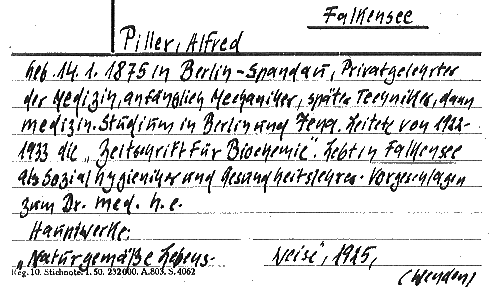 Falkensee
Piller, Alfred
Geb. 14. 1. 1875 in Berlin-Spandau, Privatgelehrter
der Medizin, anfänglich Mechaniker, später Techniker, dann
medizin. Studium in Berlin und Jena. Leitete von 1922-
1933 die „Zeitschrift für Biochemie“. Lebt in Falkensee
als Sozialhygieniker und Gesundheitslehrer. Vorgeschlagen
zum Dr. med. h. c.
Hauptwerke:
„Naturgemäße Lebens- weise“, 1925,
Reg. 10. Stichnote 1. 50. 232000. A.803. S. 4062
(Wenden)